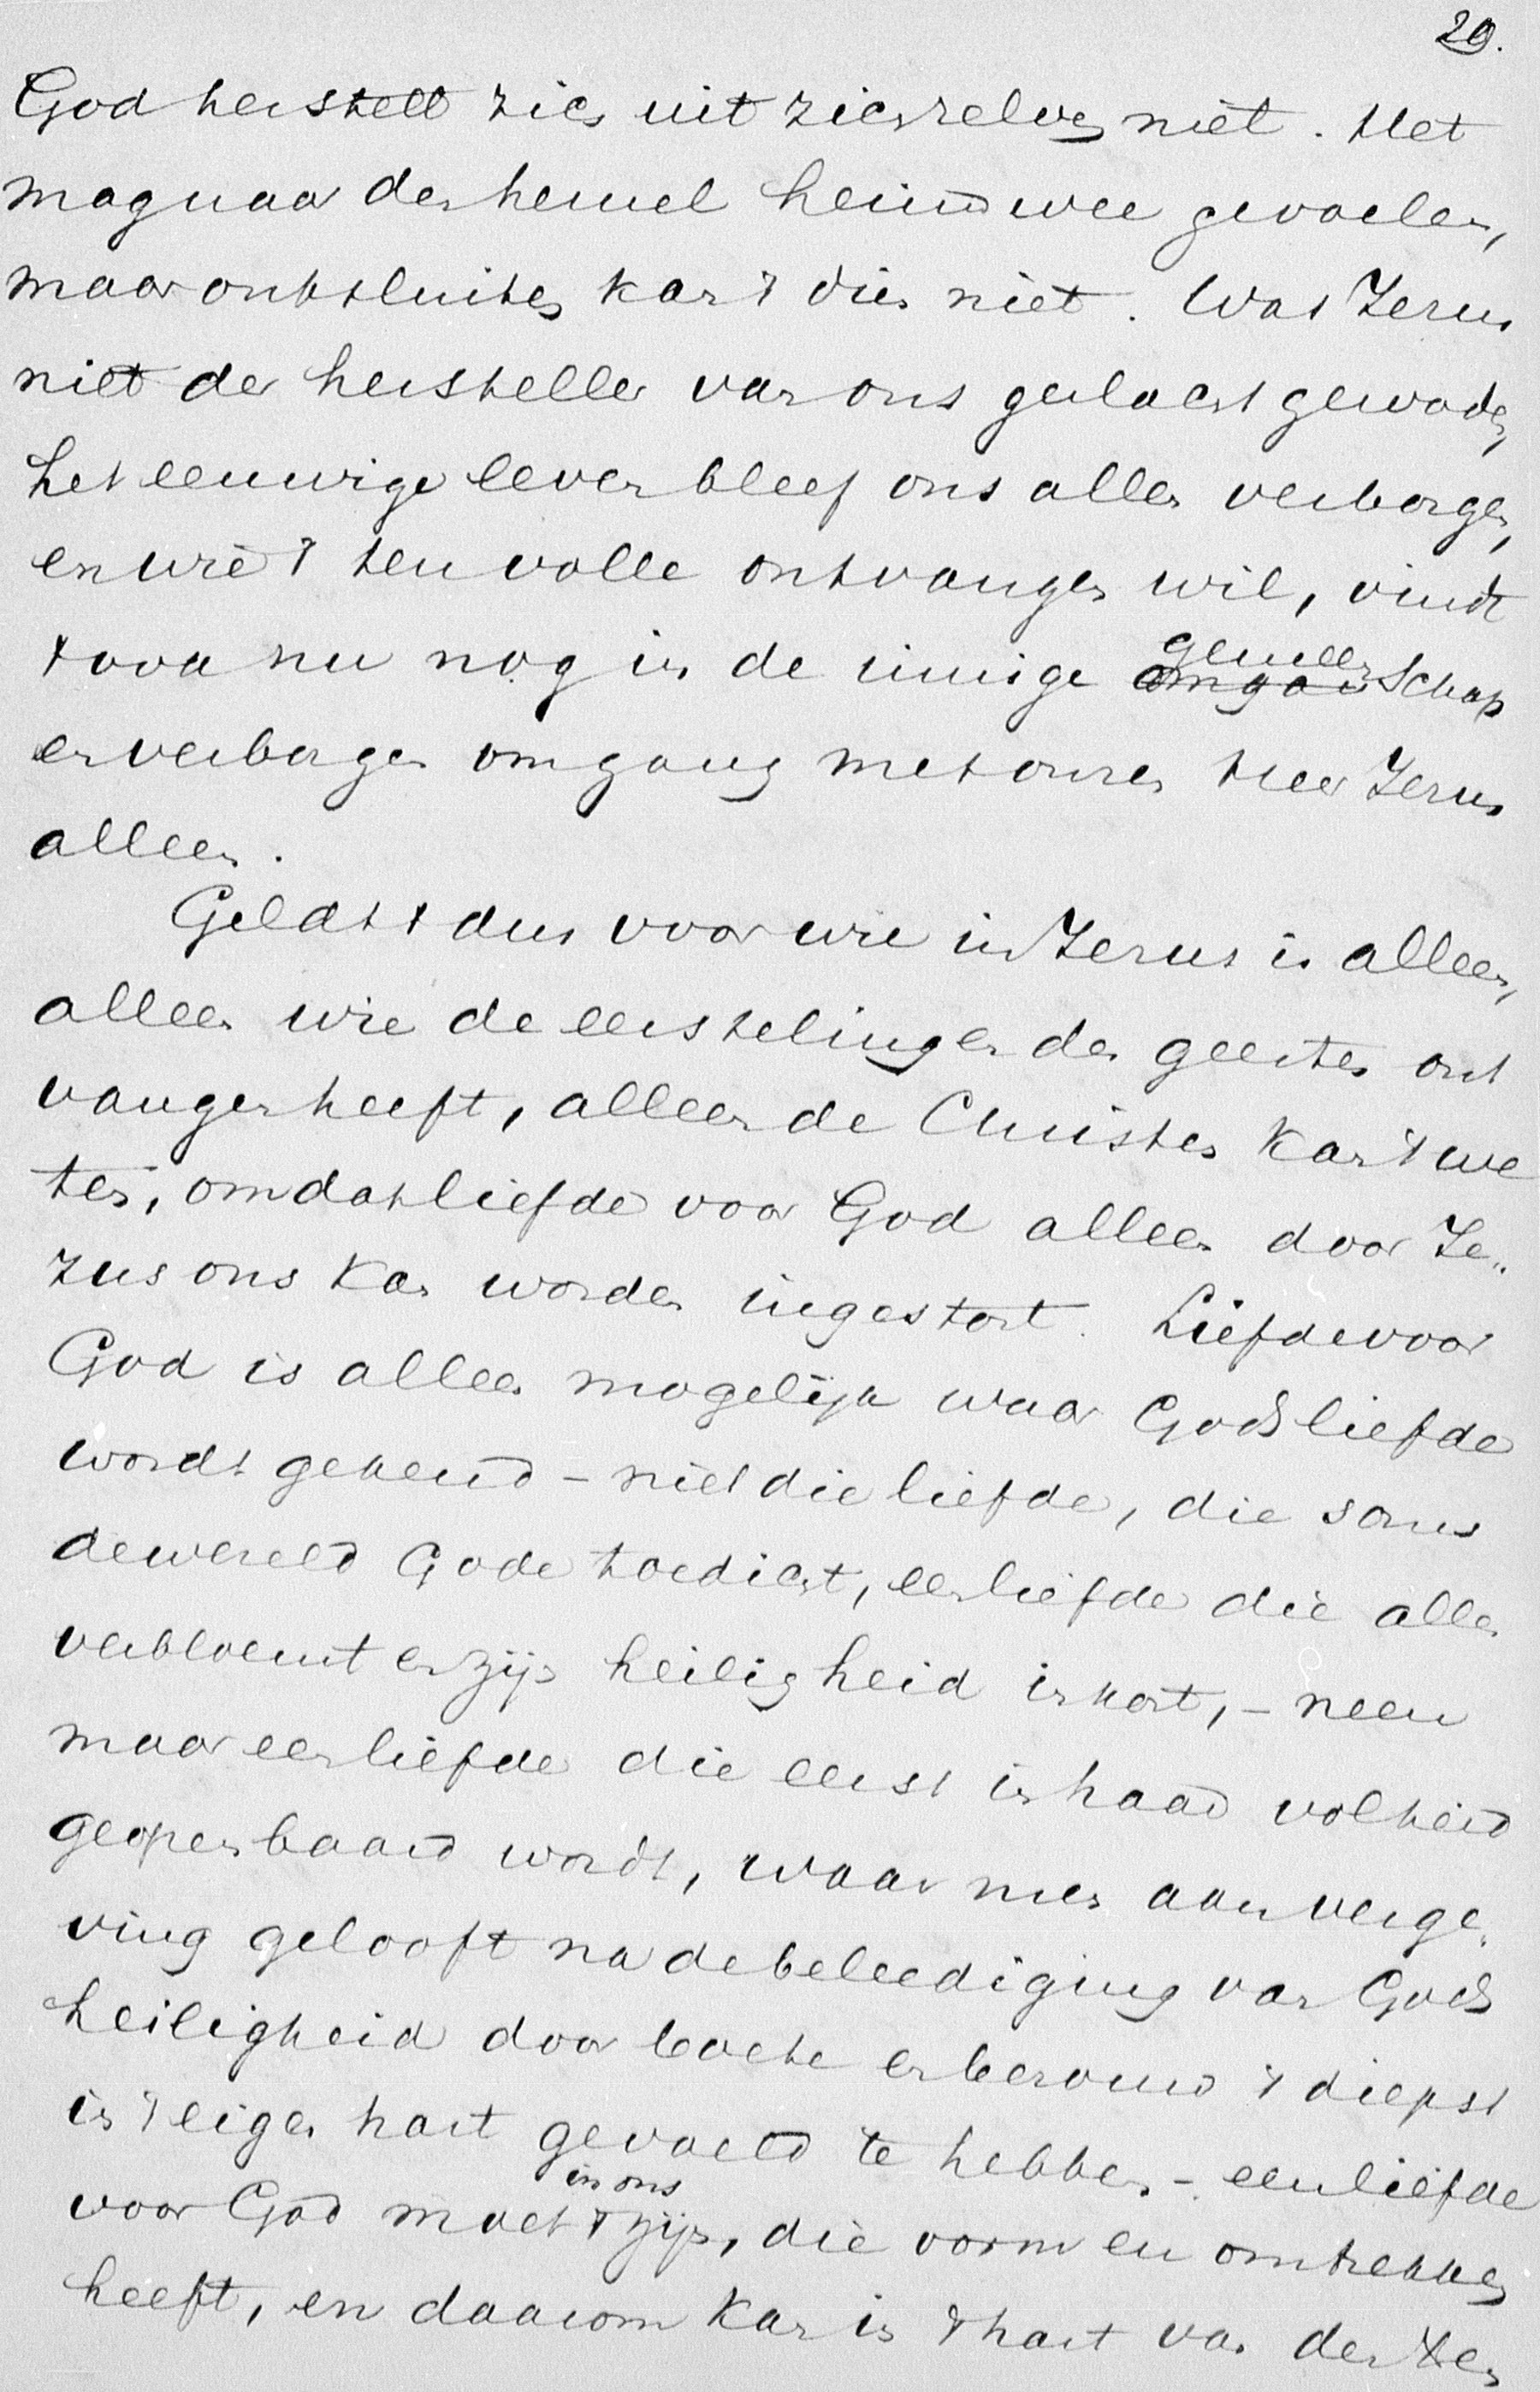 20.
God herstelt zich uit zichzelven niet. Het
mag naar den hemel heimwee gevoelen,
maar ontsluiten kan 't dien niet. Was Jezus
niet de hersteller van ons geslacht geworden,
het eeuwige leven bleef ons allen verborgen,
en wie 't ten volle ontvangen wil, vindt
't ook nu nog in de innige gemeenschap
en verborgen omgang met onzen Heer Jezus
alleen.
Geldt 't dus voor wie in Jezus is alleen,
alleen wie de eerstelingen des geestes ont
vangen heeft, alleen de Christen kan 't we
ten, omdat liefde voor God alleen door Je„
zus ons kan worden ingestort. Liefde voor
God is alleen mogelijk waar Gods liefde
wordt gekend - niet die liefde, die soms
de wereld Gode toedicht, een liefde die alles
verbloemt en zijn heiligheid inkort, - neen
maar een liefde die eerst in haar volheid
geopenbaard wordt, waar men aan verge„
ving gelooft na de beleediging van Gods
heiligheid door boete en berouw 't diepst
in 't eigen hart gevoeld te hebben - een liefde
voor God moet 't in ons zijn, die vorm en omtrekken
heeft, en daarom kan in 't hart van den